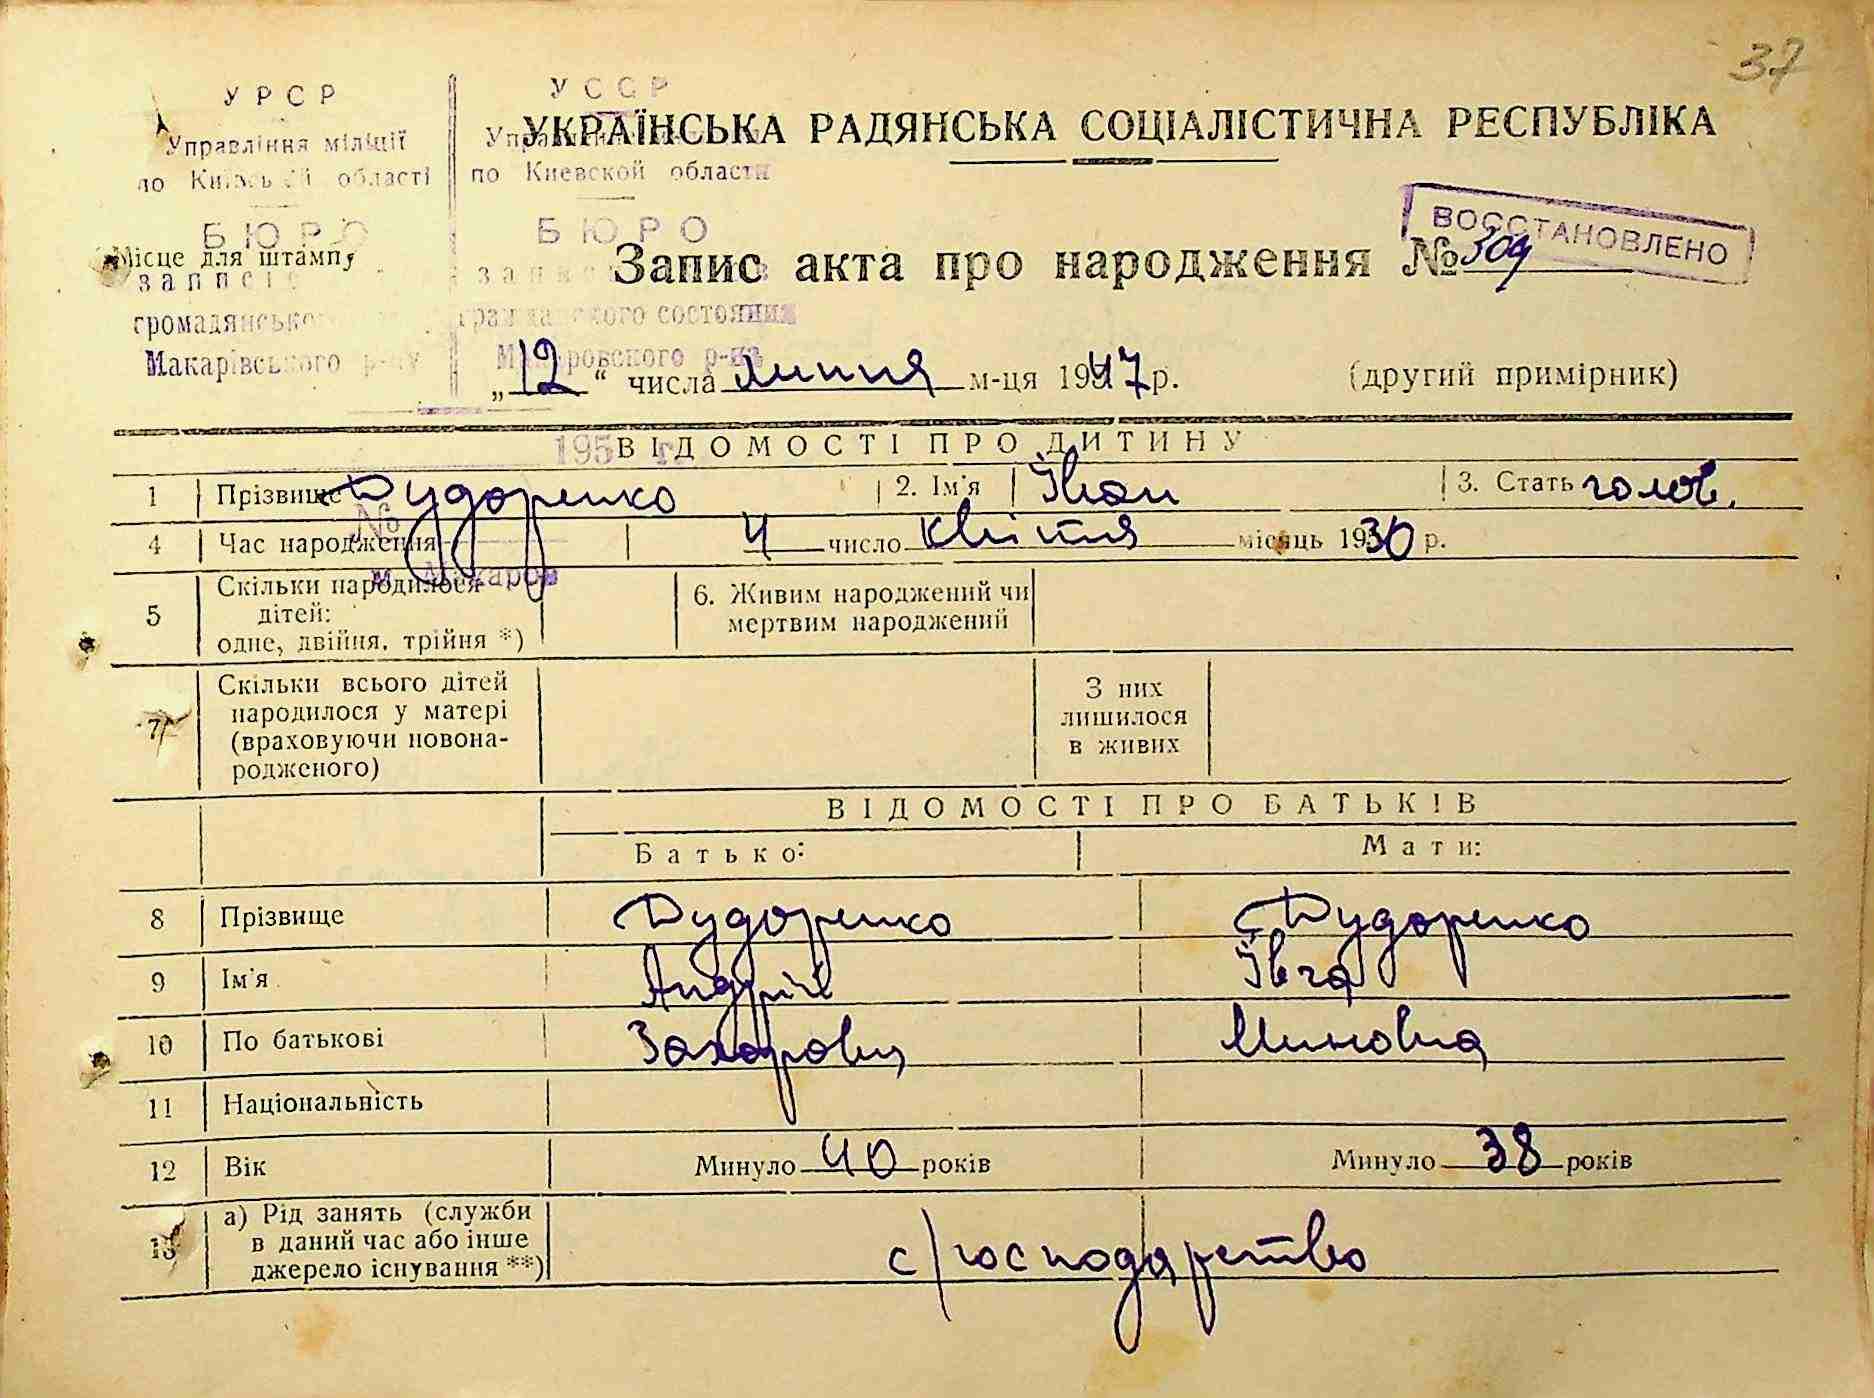 37
УРСР
Управління міліції
по Київській області
БЮРО
громадянського
Макарівського р-ну
УССР
по Киевской области
БЮРО
гражданского состояния
Макаровского р-на
195 г.
№
м. Макаров
УКРАЇНСЬКА РАДЯНСЬКА СОЦІАЛІСТИЧНА РЕСПУБЛІКА
ВОССТАНОВЛЕНО
Місце для штампу
Запис акта про народження № 309
„12“ числа липня м-ця 1947 р. (другий примірник)
ВІДОМОСТІ ПРО ДИТИНУ
1 Прізвище Дудоренко 2. Ім'я Іван 3. Стать голов.
4 Час народження 4 число квітня місяць 1930 р.
5 Скільки народилося дітей: одне, двійня, трійня *) 6. Живим народжений чи мертвим народжений
7 Скільки всього дітей народилося у матері (враховуючи новонародженого) З них лишилося в живих
ВІДОМОСТІ ПРО БАТЬКІВ
Батько: Мати:
8 Прізвище Дудоренко Дудоренко
9 Ім'я Андрій Івга
10 По батькові Захарович Миновна
11 Національність
12 Вік Минуло 40 років Минуло 38 років
13 а) Рід занять (служби в даний час або інше джерело існування **) с/господарство